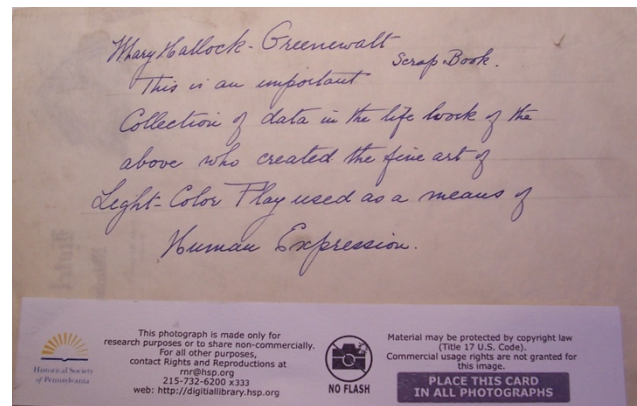 Mary Hallock-Greenewalt
Scrap Book.
This is an important
Collection of data in the life work of the
above who created the fine art of
Light-Color Play used as a means of
Human Expression.
Historical Society
of Pennsylvania
This photograph is made only for
research purposes or to share non-commercially.
For all other purposes,
contact Rights and Reproductions at
rnr@hsp.org
215-732-6200 x333
web: http://digitallibrary.hsp.org
NO FLASH
Material may be protected by copyright law
(Title 17 U.S. Code).
Commercial usage rights are not granted for
this image.
PLACE THIS CARD
IN ALL PHOTOGRAPHS